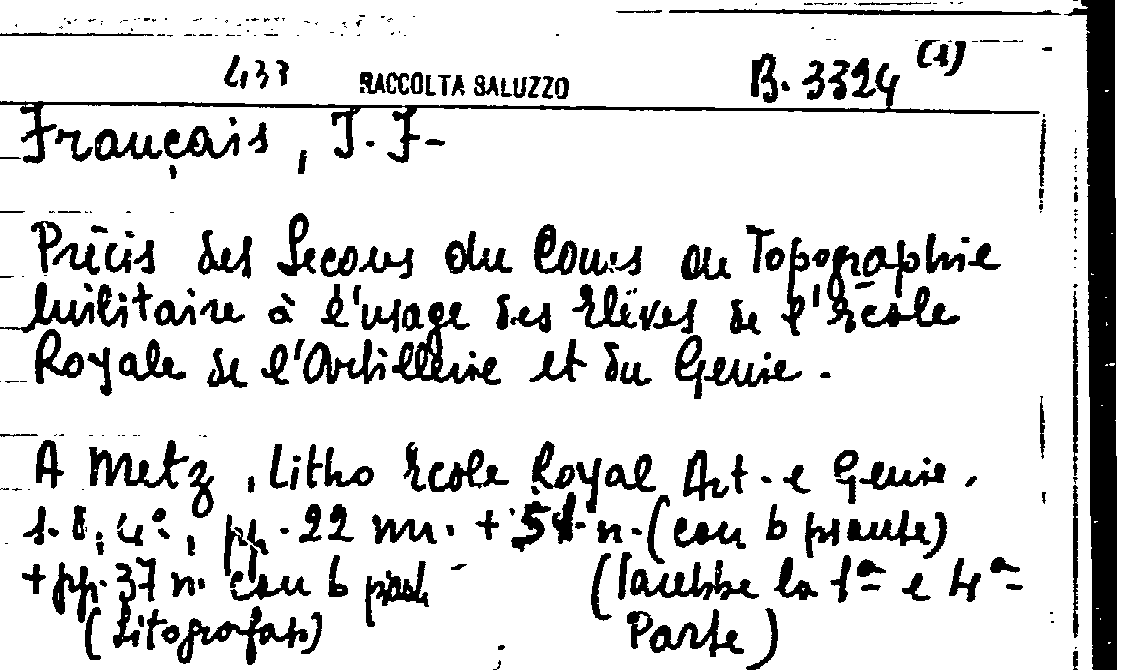 433 RACCOLTA SALUZZO B. 3324 (1)
Français, J. F-
Précis des Lecons du Cours de Topographie
militaire à l'usage des Elèves de l'École
Royale de l'Artillerie et du Genie.
A Metz, Litho Ecole Royal Art. e Genie.
4°, pp. 22 nn. + n. (con 6 piante)
+ pp. 37 n. con 6 (sarebbe la 1ª e 4ª
(Litografati) Parte)